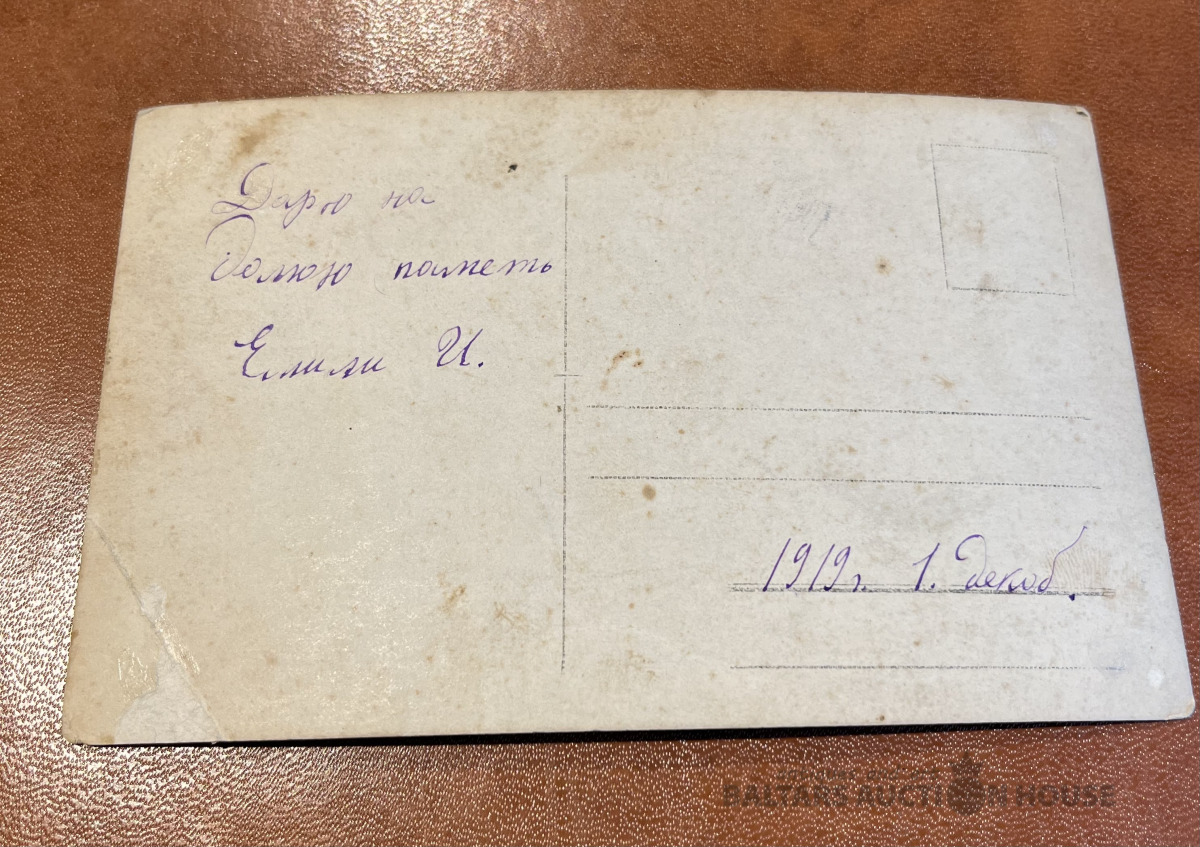 Дарю на
долюю паметь
Емили И.
1919г. 1. декаб.
BALTARS AUCTION HOUSE